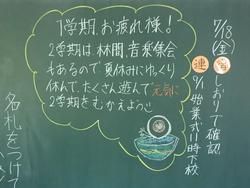 7/18(金)
しおりで確認
連 9/1 始業式 11時下校
1学期、お疲れ様!
2学期は林間、音楽集会
もあるので夏休みにゆっくり
休んで、たくさん遊んで元気に
2学期をむかえよう
名札をつけて